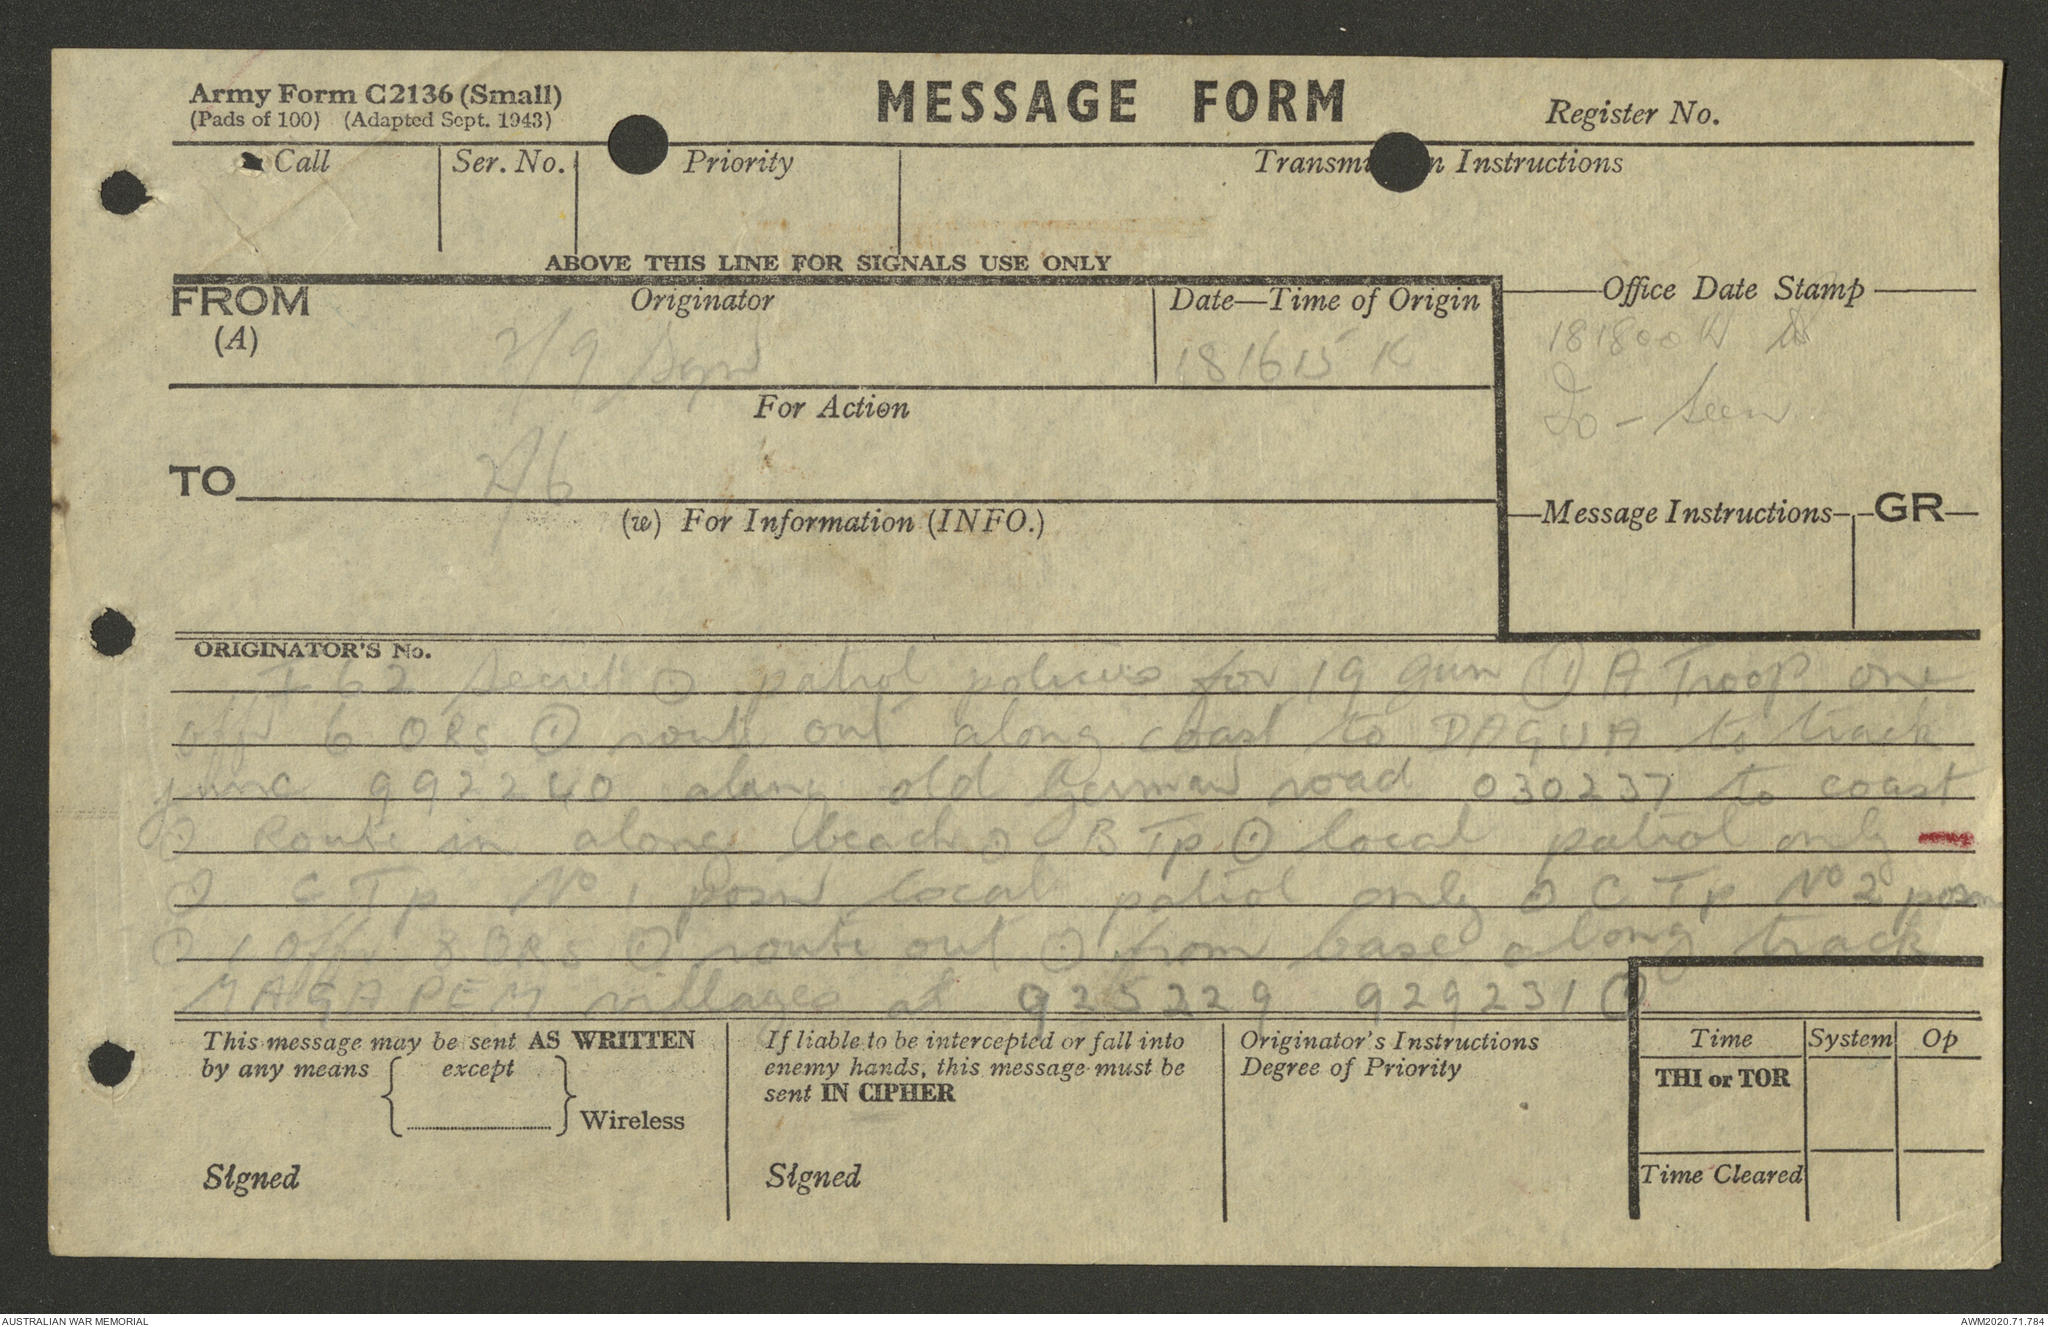 Army Form C2136 (Small)
(Pads of 100) (Adapted Sept. 1943)
MESSAGE FORM
Register No.
Call
Ser. No.
Priority
Transmi n Instructions
ABOVE THIS LINE FOR SIGNALS USE ONLY
FROM
(A)
Originator
2/9
Date—Time of Origin
181615 K
Office Date Stamp
181800 K
Io - Seen
For Action
TO
2/6
(w) For Information (INFO.)
Message Instructions
GR
ORIGINATOR'S No.
I 62 Secret ⊙ patrol policies for 19 ⊙ A Troop one
offr 6 ORs ⊙ route out along coast to DAGUA to track
junc 992240 along old German road 030237 to coast
⊙ Route in along beach ⊙ B Tp ⊙ local patrol only
⊙ C Tp No 1 posn local patrol only ⊙ C Tp No 2 posn
⊙ 1 Offr 8 ORs ⊙ route out ⊙ from base along track
MAGAPEM villages at 925229 929231 ⊙
This message may be sent AS WRITTEN
by any means { except } Wireless
Signed
If liable to be intercepted or fall into
enemy hands, this message must be
sent IN CIPHER
Signed
Originator's Instructions
Degree of Priority
Time
System
Op
THI or TOR
Time Cleared
AUSTRALIAN WAR MEMORIAL
AWM2020.71.784